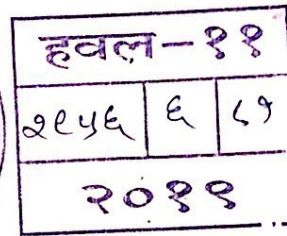 हवल-११
२९५६ ६ ८१
२०१९